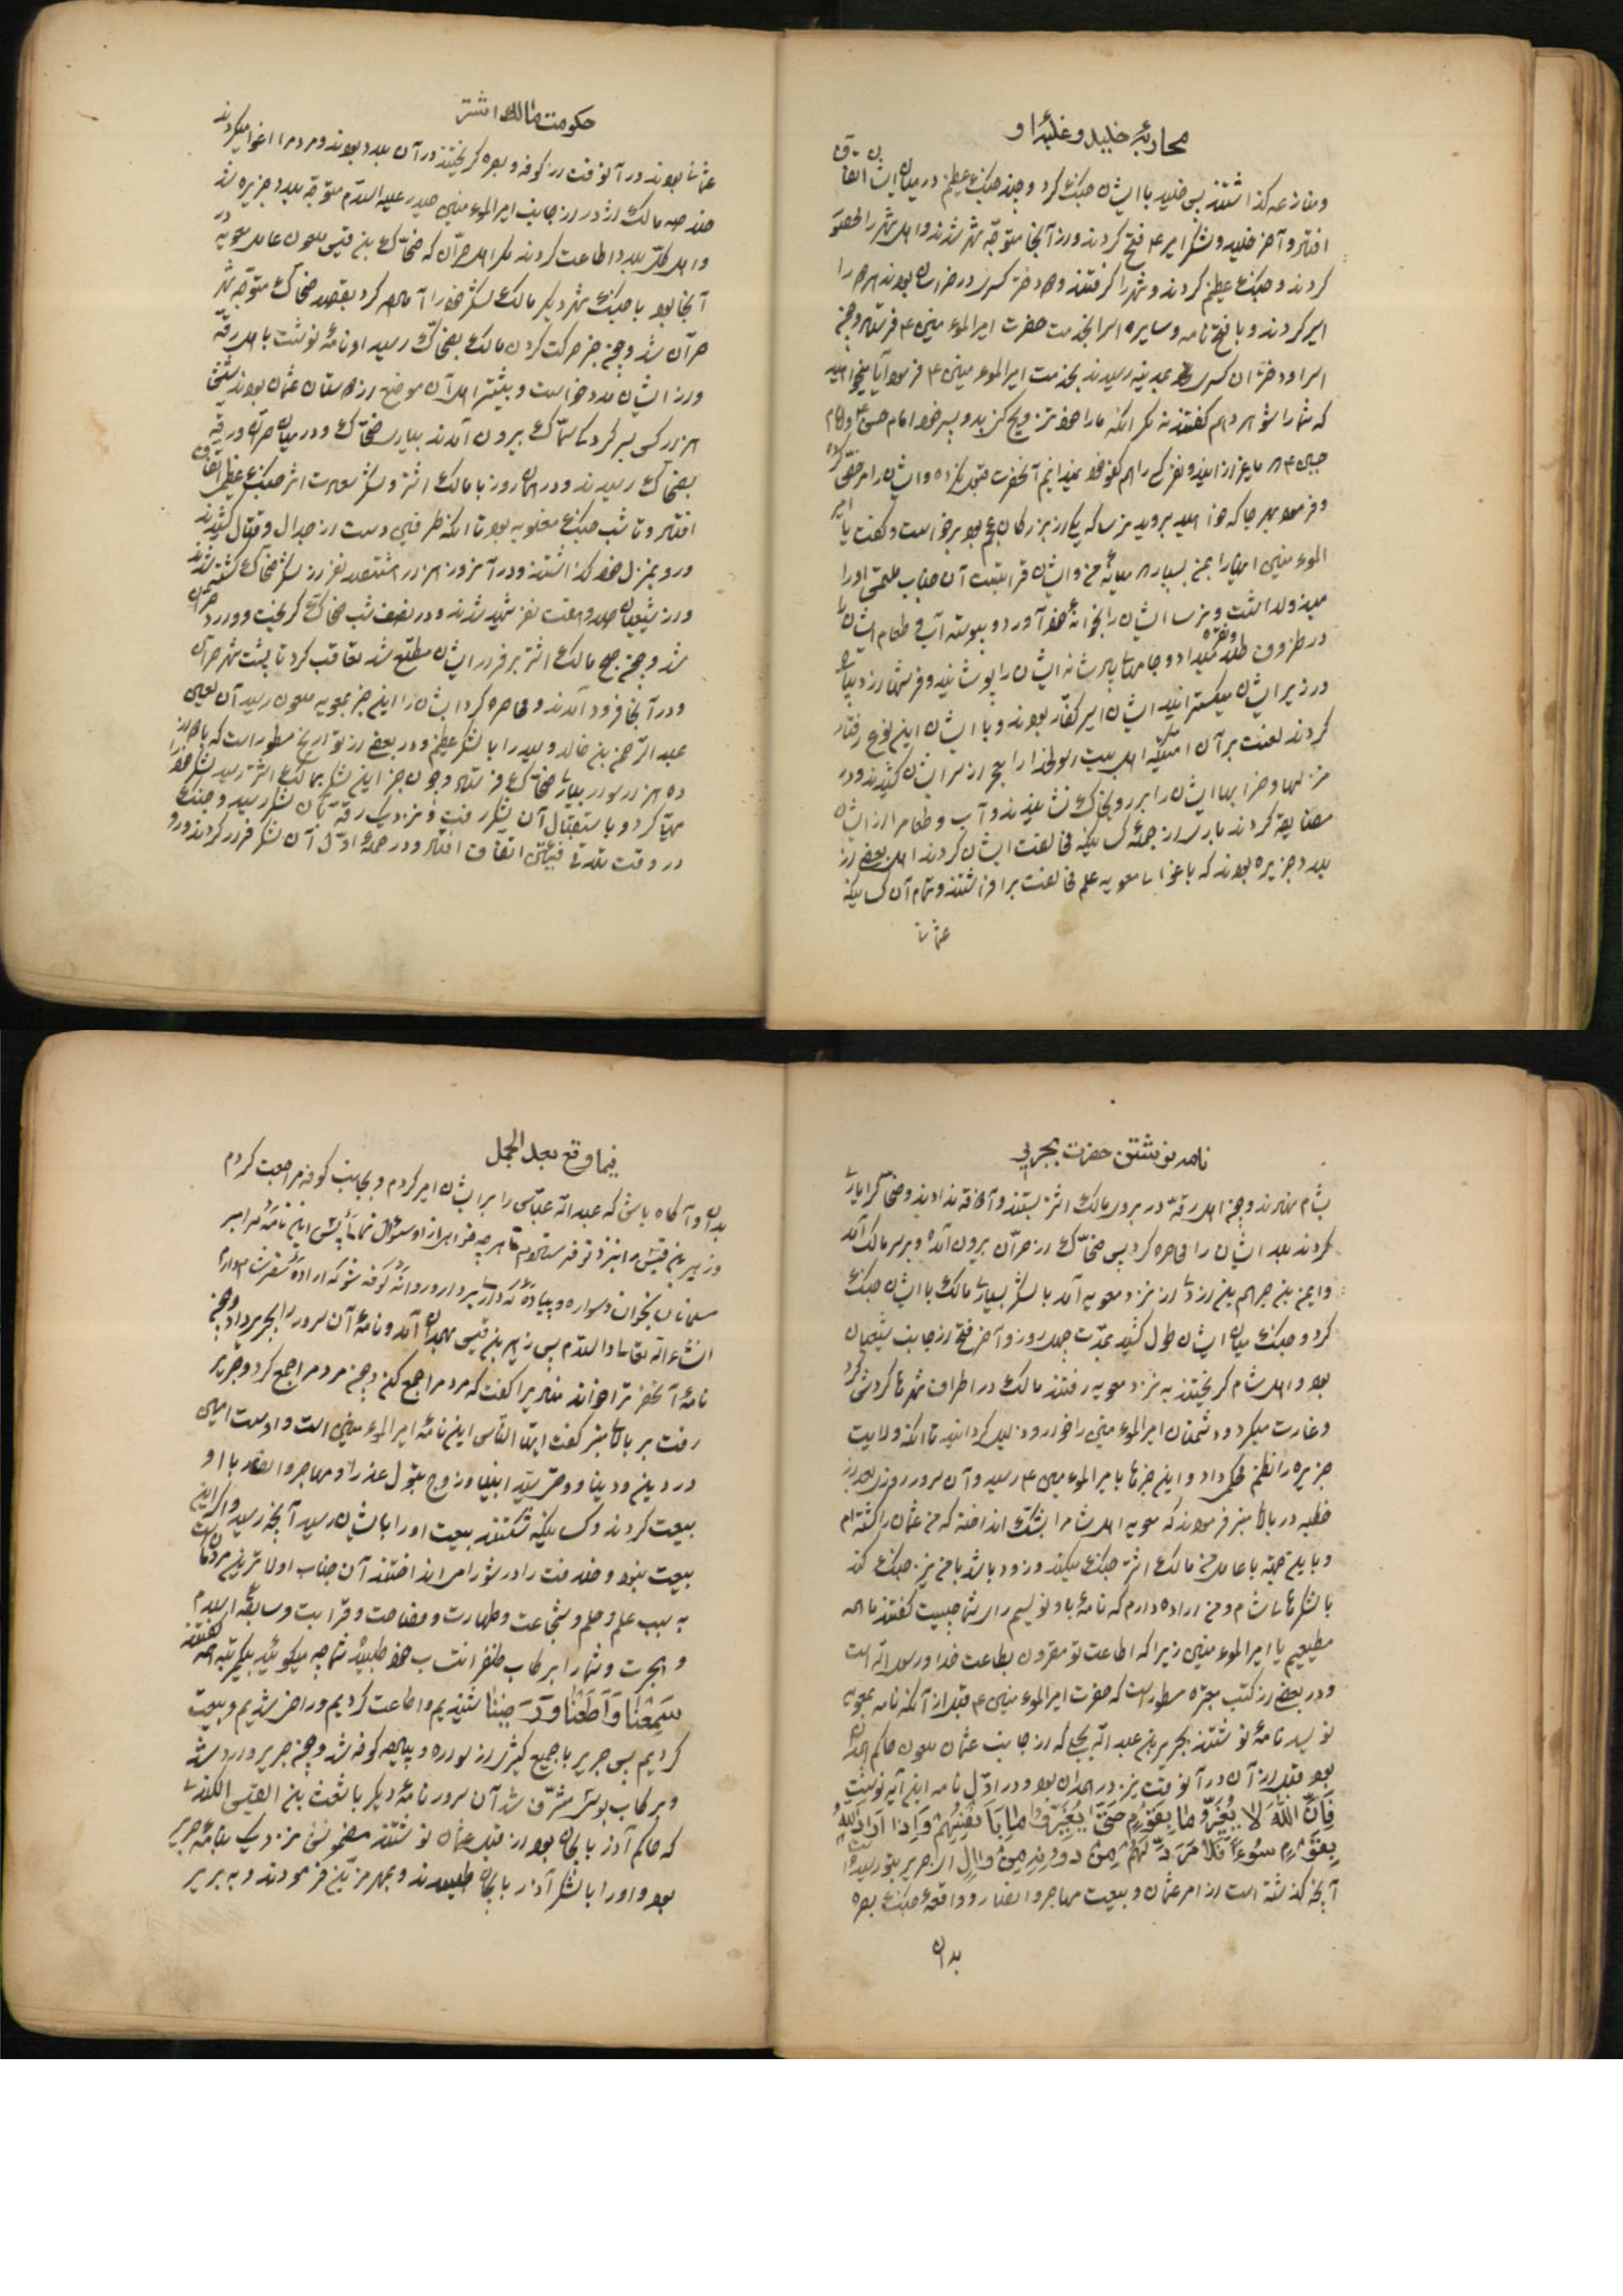 محاربهٔ خلید و غلبهٔ او
و منازعه گذاشتند پس خلید با ایشان جنگ کرد و چند جنگ عظیم در میان ایشان اتفاق
افتاد و آخر خلید و لشکر امیر ع فتح کردند و از آنجا متوجّه شهر شدند و اهل شهر را محصور
کردند و جنگ عظیم کردند و شهر را گرفتند و دو دختر کسری در خراسان بودند هر دو را
اسیر کردند و با فتح نامه و سایر اسرا بخدمت حضرت امیر المؤمنین ع فرستاد و چون
اسرا و دختران کسری بمدینه رسیدند بخدمت امیر المؤمنین ع فرمود آیا میخواهید
که شما را شوهر دهم گفتند نه مگر آنکه ما را خود تزویج کنی یا دو پسر خود امام حسن ع و امام
حسین ع
و فرمود بهر جا که خواهید بروید نرسا که یکی از بزرگان عجم بود برخواست و گفت یا امیر
المؤمنین اینها را بمن بسپار
میذول داشت و نرسا ایشان را بخانه خود آورد و پیوسته آب و طعام ایشان را
در ظروف طلا و نقره میداد و جامهای پادشاهانه ایشان را پوشانید و فرشهای از دیبا
در زیر ایشان میگسترانید ایشان اسیر کفّار بودند و با ایشان این نوع رفتار
کردند لعنت بر آن امّتیکه اهل بیت رسولخدا را معجر از سر ایشان کشیدند و در
منزلها و خرابها ایشان را بر روی خاک نشانیدند و آب و طعام را از ایشان
مضایقه کردند باری از جمله کسانیکه مخالفت ایشان کردند اهل بعض از
بلاد جزیره بودند که باغوای معویه علم مخالفت برافراشتند و تمام آن کسانیکه
عثمانی
حکومت مالک اشتر
عثمانی بودند در آنوقت از کوفه و بصره گریختند در آن بلاد بودند و مردم را اغوا میکردند
خلاصه مالک اژدر از جانب امیر المؤمنین حیدر علیه السلام متوجّه بلاد جزیره شد
و اهل کلّ بلاد اطاعت کردند مگر اهل حرّان که ضحّاک بن قیس ملعون عامل معویه در
آنجا بود با جنگ شهر دیگر مالک لشکر خود را آماده کرد بقصد ضحّاک متوجّه شهر
حرّان شد و چون خبر حرکت کردن مالک بضحّاک رسید او نامهٔ نوشت باهل رقّه
و از ایشان مدد خواست و بیشتر اهل آن موضع از دوستان عثمان بودند
هزار کس بسرکردگی سمّاک بیرون آمدند بیاری ضحّاک و در میان حرّان و رقّه
بضحّاک رسیدند و در همان روز با مالک اشتر و لشکر نصرت اثر جنگ عظیمی اتفاق
افتاد و تا شب جنگ مغلوبه بود تا آنکه طرفین دست از جدال و قتال کشیدند
و رو بمنزل خود گذاشتند و در آنروز هزار و هشتصد نفر از لشکر ضحّاک کشته شدند
و از شیعیان صد و هفت نفر شهید شدند و در نصف شب ضحّاک گریخت و وارد حرّان
شد و چون صبح مالک اشتر بر فرار ایشان مطّلع شد تعاقب کرد تا پشت شهر حرّان
و در آنجا فرود آمدند و محاصره کرد ایشان را این خبر بمعویه ملعون رسید آن لعین
عبد الرّحمن بن خالد ولید را با لشکر عظیم و در بعض از تواریخ مسطور است که با دوازده
ده هزار سوار بیاری ضحّاک فرستاد و چون خبر این لشکر بمالک اشتر رسید لشکر خود را
مهیّا کرد و باستقبال آن لشکر رفت و نزدیک رقّه بآن لشکر رسید و جنگ
در وقت تلاقی فئتین اتفاق افتاد و در حملهٔ اوّل آن لشکر فرار کردند و رو
نامه نوشتن حضرت بجریر
بشام نهادند و چون اهل رقّه در بروی مالک اشتر بستند و آذوقه ندادند و ضحّاک را یاری
کردند بعد ایشان را محاصره کرد پس ضحّاک از حرّان بیرون آمد و بر سر مالک آمد
و ایمن بن خریم بن ازدی از نزد معویه آمد با لشکر بسیار مالک با ایشان جنگ
کرد و جنگ میان ایشان طول کشید بمدّت چهل روز و آخر فتح از جانب شیعیان
بود و اهل شام گریختند به نزد معویه رفتند مالک در اطراف شهرها گردش کرد
و غارت میکرد و دشمنان امیر المؤمنین را خوار و ذلیل گردانید تا آنکه ولایت
جزیره را نظم محکمی داد و این خبرها بامیر المؤمنین ع رسید و آن سرور روزی بعد از
خطبه در بالای منبر فرمودند که معویه اهل شام را بشک انداخته که من عثمان را کشته ام
و با این تهمّت با عامل من مالک اشتر جنگ میکند و زود باشد با من نیز جنگ کند
با لشکرهای شام و من اراده دارم که نامهٔ باو نویسم رای شما چیست گفتند ما همه
مطیعیم یا امیر المؤمنین زیرا که اطاعت تو مقرون بطاعت خدا و رسول الله است
و در بعض از کتب معتبره مسطور است که حضرت امیر المؤمنین ع قبل از آنکه نامه بمعویه
نویسد نامهٔ نوشتند بجریر بن عبد الله بجلی که از جانب عثمان ملعون حاکم همدان
بود قبل از آن در آنوقت نیز در همدان بود و در اوّل نامه این آیه نوشت
فَاِنَّ اللّٰهَ لا یُغَیِّرُ ما بِقَوْمٍ حَتّیٰ یُغَیِّرُوا ما بِاَنْفُسِهِمْ وَاِذا اَرادَ اللّٰهُ
بِقَوْمٍ سُوءاً فَلا مَرَدَّ لَهُمْ مِنْ دُونِهِ مِنْ والٍ ای جریر بتو رسید
آنچه گذشته است از امر عثمان و بیعت مهاجر و انصار و واقعهٔ جنگ بصره
بدان
فیما وقع بعد الجمل
بدان و آگاه باش که عبد الله عبّاس را بر ایشان امیر کردم و بجانب کوفه مراجعت کردم
و زهیر بن قیس را بنزد تو فرستادم تا هر چه خواهی از او سئوال نمائی این نامه را بر
مسلمانان بخوان و سواره و پیاده که داری بردار و روانه کوفه شو که اراده سفر شام دارم
انشاء الله تعالی والسّلام پس زهیر بن قیس بهمدان آمد و نامهٔ آن سرور را بجریر داد و چون
نامهٔ آنحضرت را خواند منادی را گفت که مردم را جمع کند و چون مردم را جمع کرد و جریر
رفت بر بالای منبر گفت ایّها النّاس این نامهٔ امیر المؤمنین است و او است امین
در دین و دنیا و وصیّ سیّد انبیا و زوج بتول عذرا و مهاجر و انصار با او
بیعت کردند و کسانیکه شکستند بیعت او را بایشان رسید آنچه رسید و اگر این
بیعت نبود و خلافت را در شورا می انداختند آن جناب اولاترین مردمان است
به سبب علم و حلم و شجاعت و طهارت و فصاحت و قرابت و سابقهٔ اسلام
و هجرت و شما را برکاب ظفر انتساب خود طلبیده شما چه میگوئید بیکمرتبه همه گفتند
سَمِعْنا وَ اَطَعْنا وَ رَضینا شنیدیم و اطاعت کردیم و راضی شدیم و بیعت
کردیم پس جریر با جمیع کثیر از سواره و پیاده کوفه شد و چون جریر وارد شد
و برکاب بوسی مشرّف شد آن سرور نامهٔ دیگر باشعث بن القیس الکندی
که حاکم آذربایجان بود از قبل عثمان نوشتند مضمونش نزدیک بنامهٔ جریر
بود و او را با لشکر آذربایجان طلبیدند و بمهر مزیّن فرمودند و به بریر